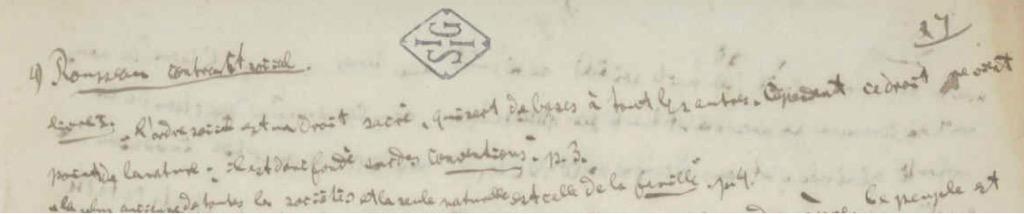 27
SIG SIG
4) Rousseau contract social.
livre I. "L'ordre social est un droit sacré, qui sert de bases à tout les autres. Cependant ce droit ne vient
point de la nature. il est donc fondé sur des conventions". p. 3.
"la plus ancienne de toutes les sociétés et la seule naturelle est celle de la famille". p. 4.
le peuple est